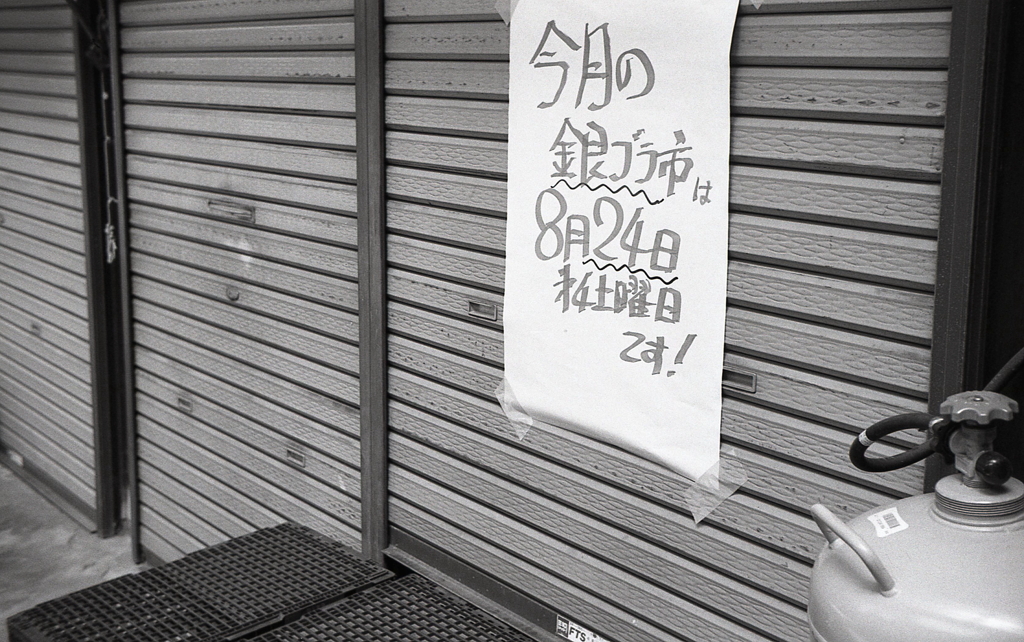 今月の
銀ブラ市は
8月24日
土曜日
です!
FTS